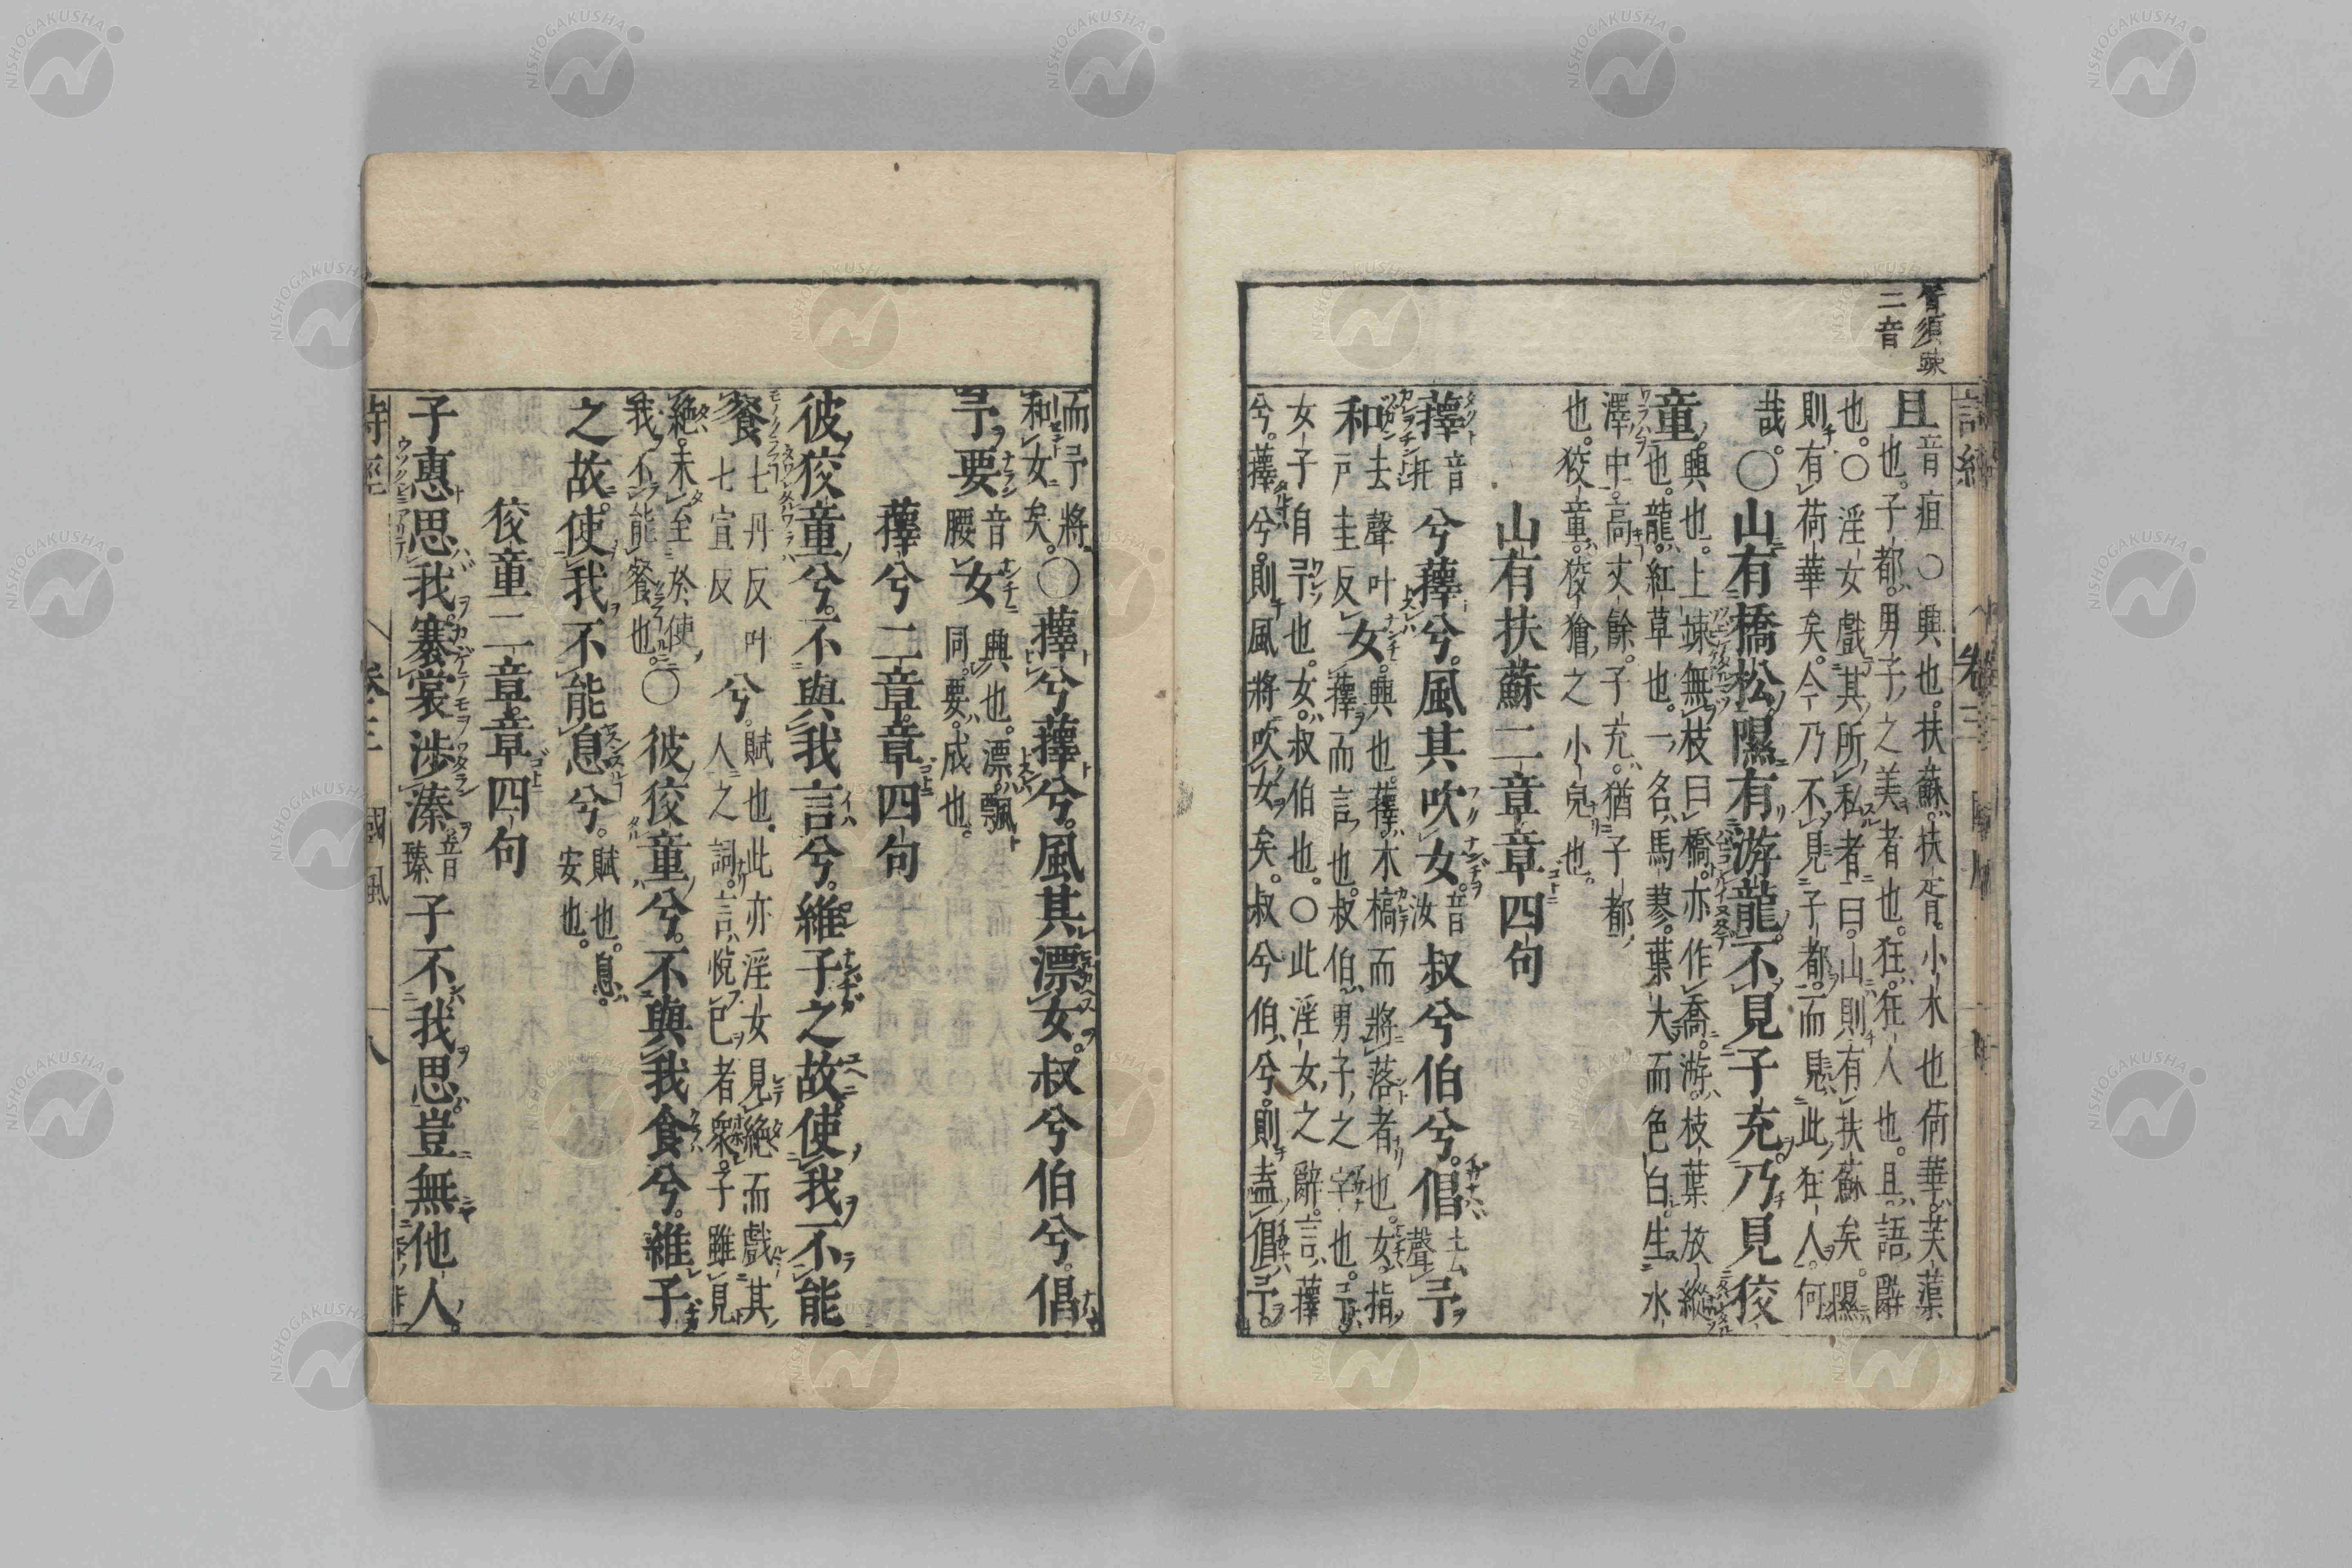 胥須疎
二音
且音疽○興也。扶蘇。扶胥。小木也荷華。芙蕖
也。子都。男子之美者也。狂。狂人也。且。語辭
也。○淫女戲其所私者曰。山則有扶蘇矣。隰
則有荷華矣。今乃不見子都。而見此狂人。何
哉。○山有橋松。隰有游龍。不見子充。乃見狡
童。興也。上竦無枝曰橋。亦作喬。游。枝葉放縱
也。龍。紅草也。一名馬蓼。葉大而色白。生水
澤中。高丈餘。子充。猶子都
也。狡童。狡獪之小兒也。
山有扶蘇二章章四句
蘀音托兮蘀兮。風其吹女。音汝叔兮伯兮。倡去聲予
和去聲叶戸圭反女。興也。蘀。木槁而將落者也。女。指
蘀而言也。叔伯。男子之字也。予。
女子自予也。女。叔伯也。○此淫女之辭。言蘀
兮。蘀兮。則風將吹女矣。叔兮伯兮。則盍倡予。
而予將
和女矣。○蘀兮蘀兮。風其漂女。叔兮伯兮。倡
予要音腰女興也。漂。飄
同。要。成也。
蘀兮二章章四句
彼狡童兮。不與我言兮。維子之故。使我不能
餐七丹反叶七宣反兮。賦也。此亦淫女見絶而戲其
人之詞。言悅己者衆。子雖見
絶。未至於使
我不能餐也。○彼狡童兮。不與我食兮。維子
之故。使我不能息兮。賦也。息。
安也。
狡童二章章四句
子惠思我。褰裳涉溱。音臻子不我思。豈無他人。
詩經
卷三
國風
十八